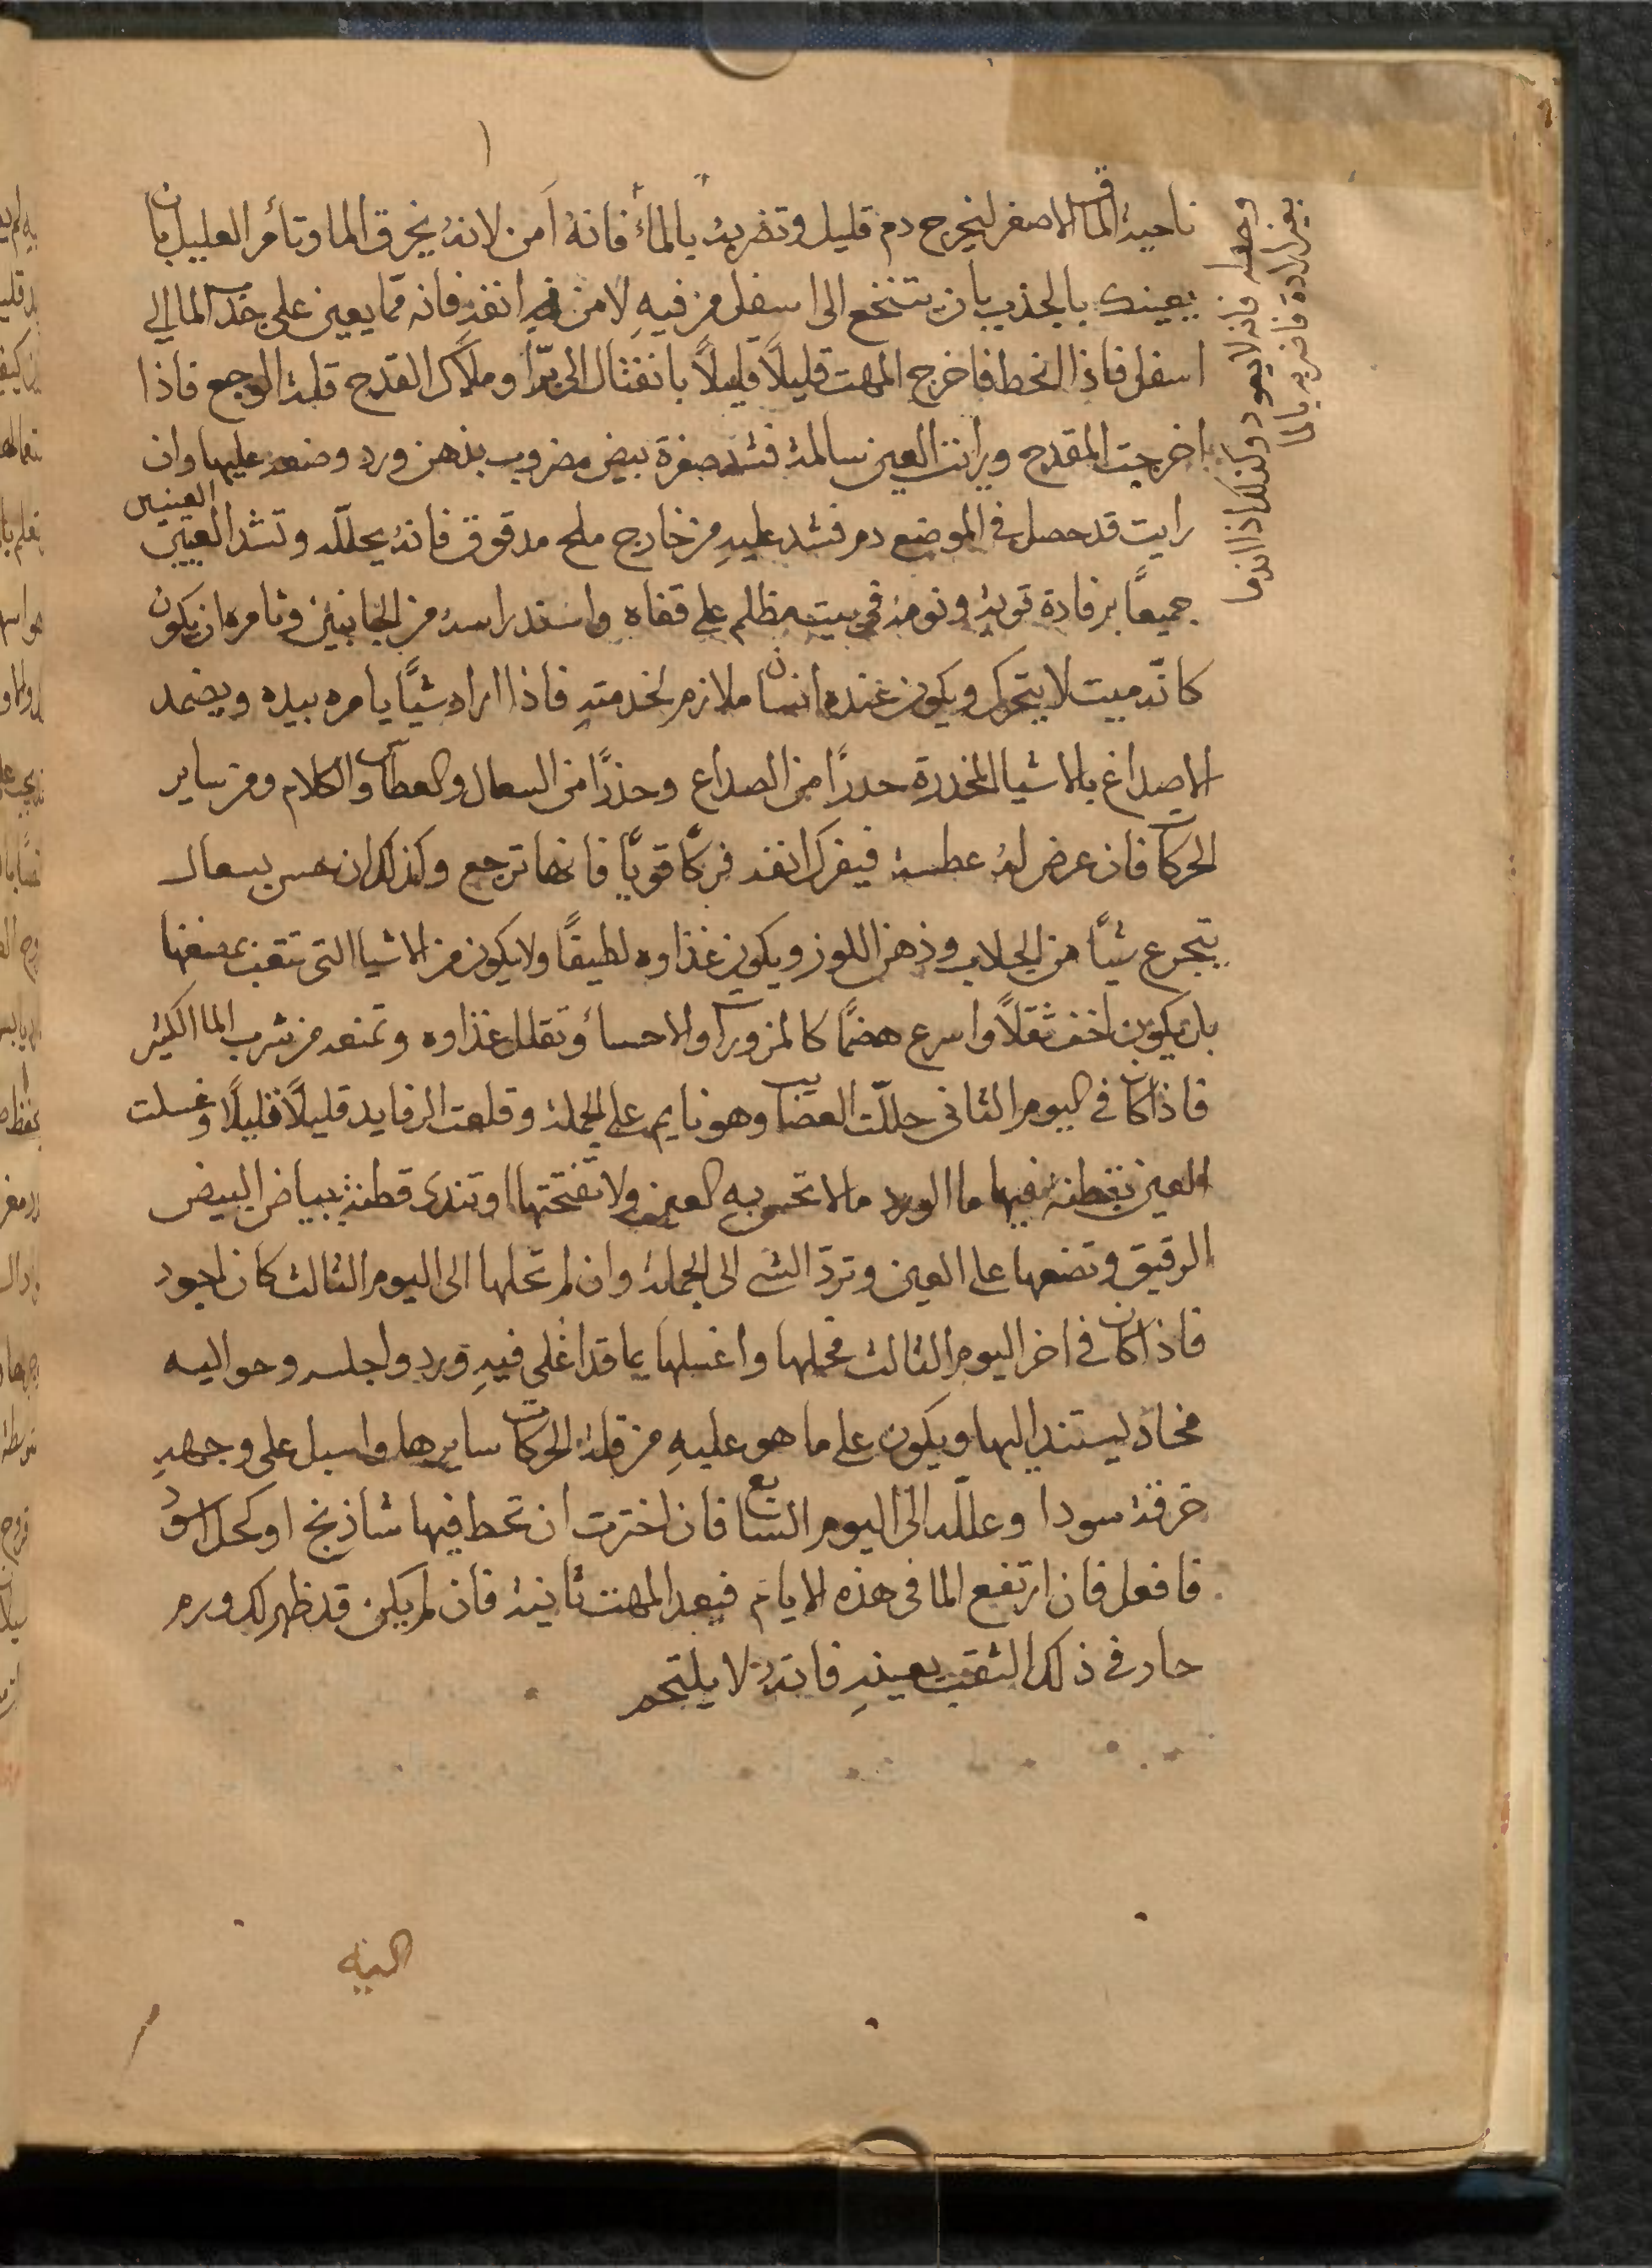 ناحية الماق الاصغر ليخرج دم قليل وتضربه بالماءُ فانهُ آمن لانهُ يخرق الما وتأمر العليل بان
يعينك بالجذب بان يتنخع الى اسفل من فيهِ لا من انفهِ فانه ممّا يعين على جذب الما الى
اسفل فاذا انحط فاخرج المهت قليلاً قليلاً بانفتال الى برّا وملاك القدح قلة الوجع فاذا
اخرجت المقدح ورايت العين سالمة فشد صفرة بيض مضروب بدهن ورد وضعه عليها وان
رايت قد حصل في الموضع دم فشد عليهِ من خارج ملح مدقوق فانهُ يحللّه وتشد العينين
العينين
جميعاً برفادة قويةٍ ونومهُ في بيت مظلم على قفاه واسند راسهُ من الجانبين وتامره ان يكون
كانّه ميت لا يتحرك ويكون عنده انسان ملازم لخدمتهِ فاذا اراد شياً يامره بيده ويضمد
الاصداغ بالاشيا المخدرة حدرًا من الصداع وحذرًا من السعال والعطاس والكلام ومن ساير
الحركات فان عرض لهُ عطسة فيفرك انفه فركًا قويًا فانها ترجع وكذلك ان حس بسعال
يتجرع شيًا من الجلاب ودهن اللوز ويكون غذاوه لطيفًا ولا يكون من الاشيا التي تتعب بمضغها
بل يكون اخف ثقلاً واسرع هضمًا كالمزورات والاحساء وتقلل غذاوه وتمنعه من شرب الما الكثير
فاذا كان في اليوم الثاني حللّت العصايب وهو نايم على الجملة وقلعت الرفايد قليلاً قليلاً وغسلت
العين بقطنة فيها ما الورد مالا تحس به العين ولا تفتحتها او تندى قطنة ببياض البيض
الرقيق وتضعها على العين وتردّ الشي الى الجملة وان لم تحلها الى اليوم الثالث كان اجود
فاذا كان في اخر اليوم الثالث فحلها واغسلها بما قد اُغلى فيهِ ورد واجلسه وحواليه
مخاد ليستند اليها ويكون على ما هو عليهِ من قلة الحركات سايرها واسبل على وجههِ
خرقة سودا وعللّه الى اليوم السابع فان اخترت ان تحط فيها شاذنج او كحل اسود
فافعل فان ارتفع الما في هذه الايام فيعد المهت ثانية فان لم يكن قد ظهر لك ورم
حار في ذلك الثقب بعينهِ فانهُ لا يلتحم
فانه لا يعود وكذلك اذا
فاضربه بالما
اليه